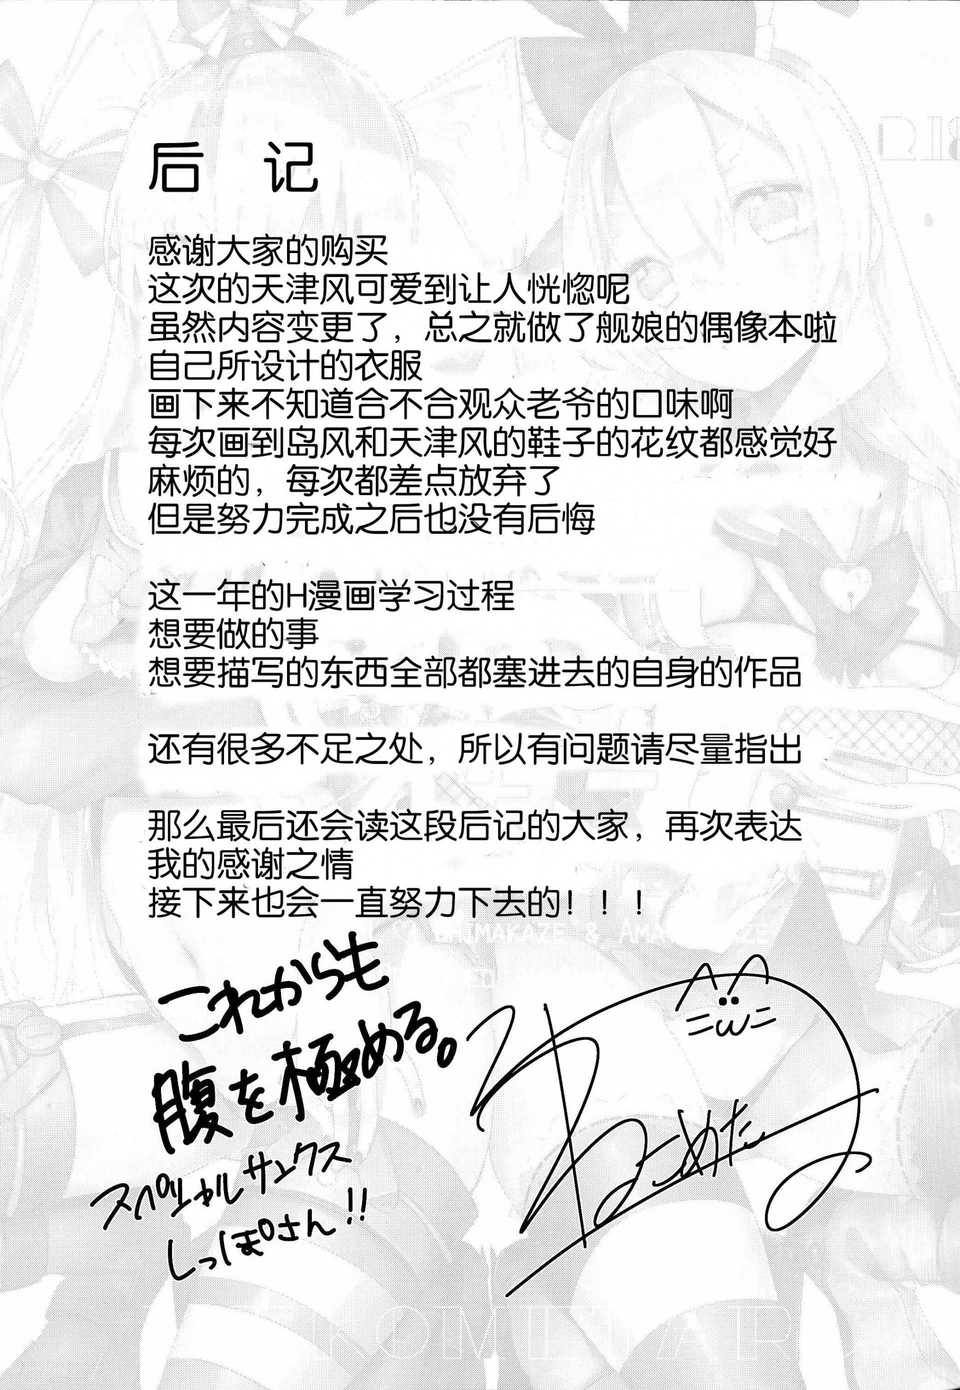 后 记
感谢大家的购买
这次的天津风可爱到让人恍惚呢
虽然内容变更了，总之就做了舰娘的偶像本啦
自己所设计的衣服
画下来不知道合不合观众老爷的口味啊
每次画到岛风和天津风的鞋子的花纹都感觉好
麻烦的，每次都差点放弃了
但是努力完成之后也没有后悔
这一年的H漫画学习过程
想要做的事
想要描写的东西全部都塞进去的自身的作品
还有很多不足之处，所以有问题请尽量指出
那么最后还会读这段后记的大家，再次表达
我的感谢之情
接下来也会一直努力下去的！！！
SHIMAKAZE &
これからも
腹を極める。
スペシャルサンクス
しっぽさん!!
ねこめたる